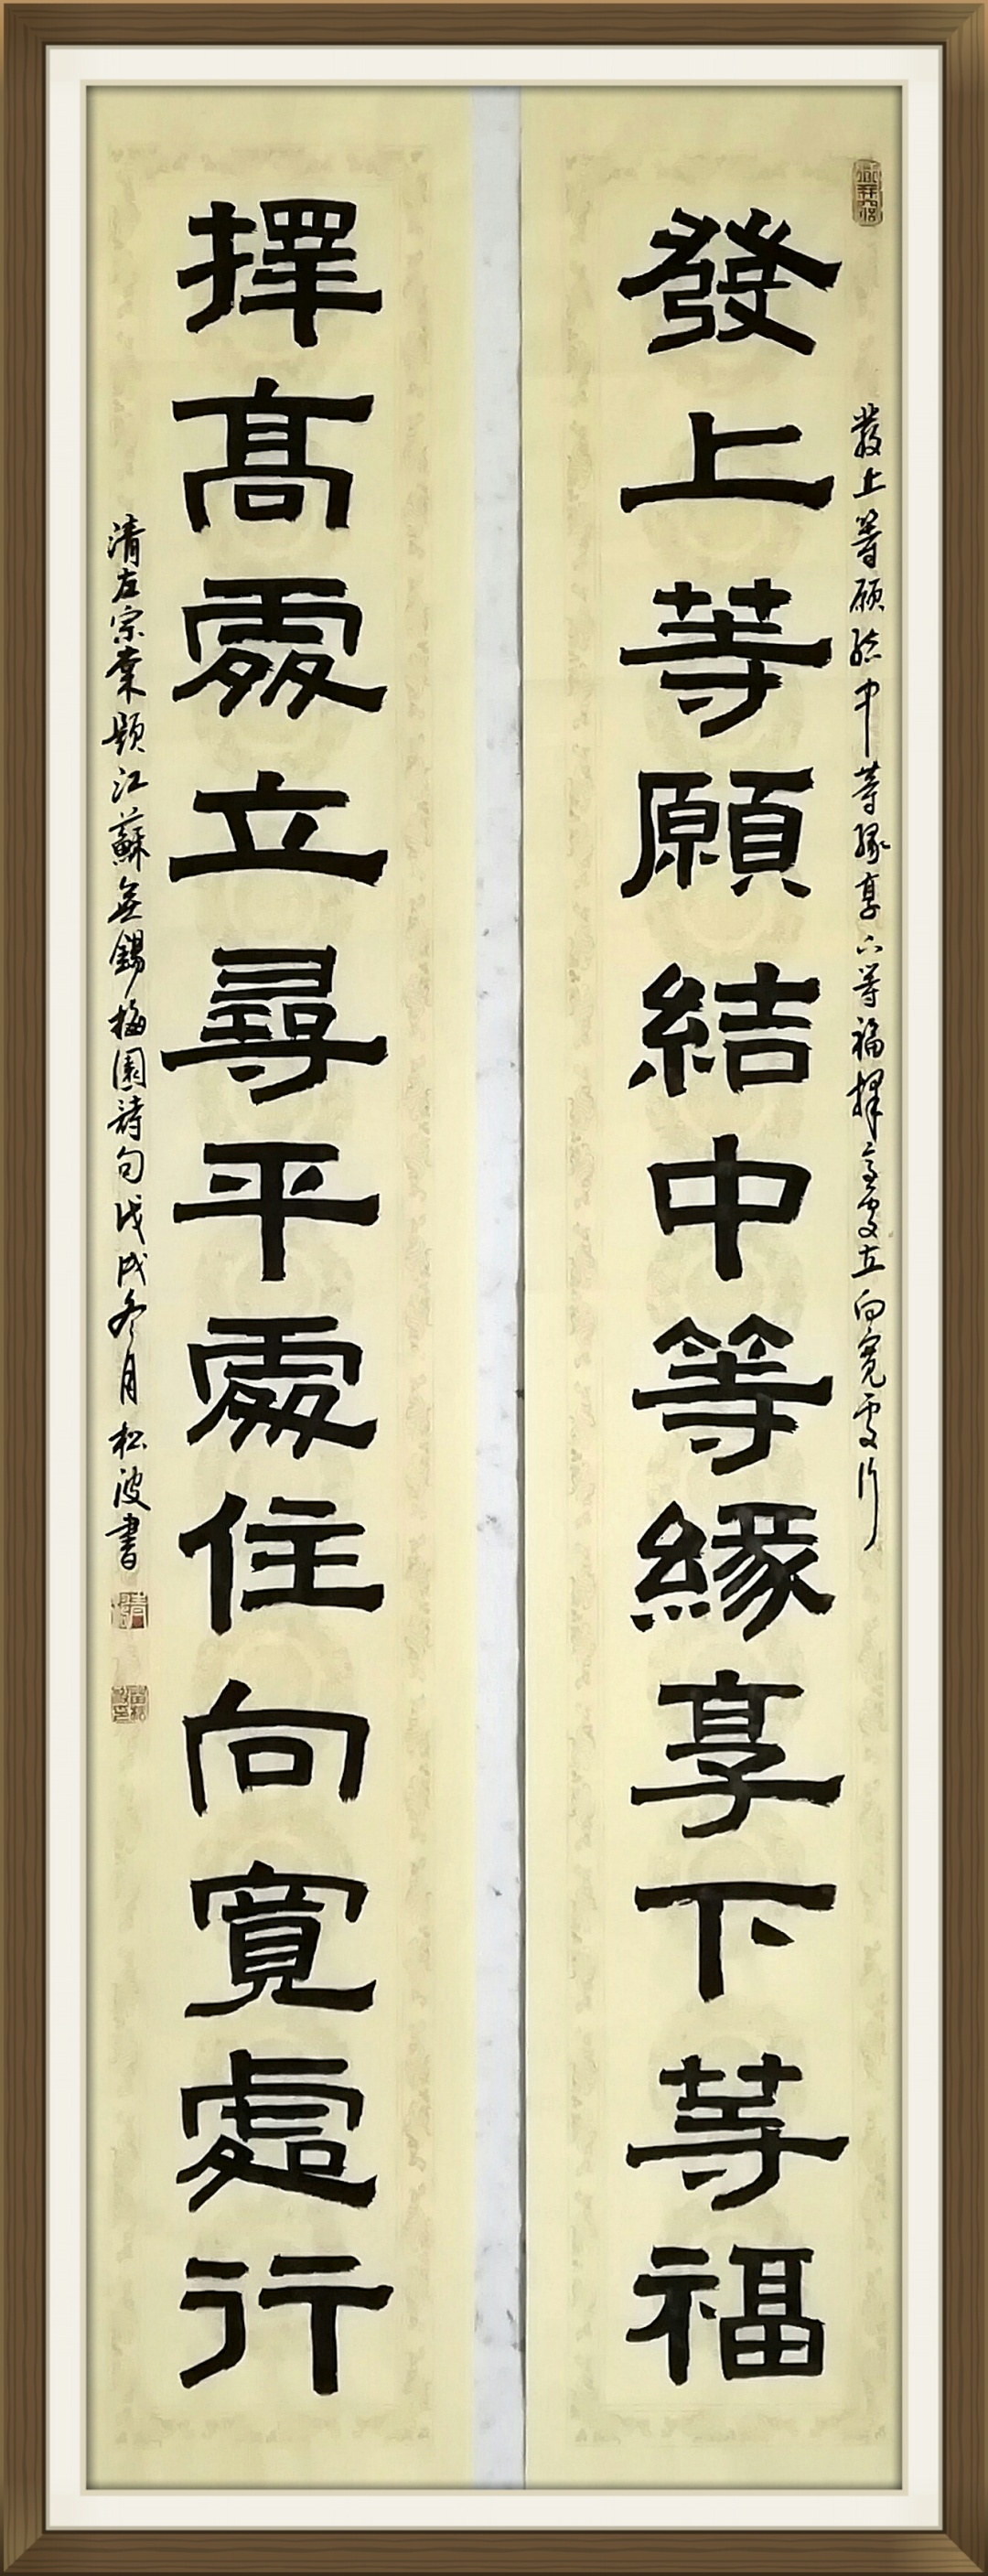 發上等願結中等緣享下等福擇高處立向寬處行
發上等願結中等緣享下等福
擇高處立尋平處住向寬處行
清左宗棠題江蘇無錫梅園詩句戊戌冬月松波書